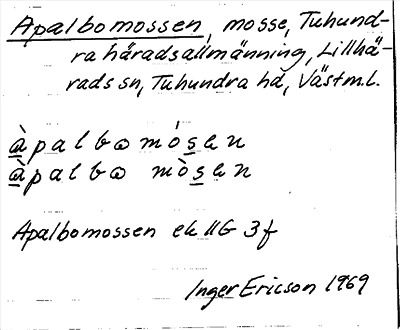 Apalbomossen, mosse, Tuhund-
ra häradsallmänning, Lillhä-
rads sn, Tuhundra hd, Västm.l.
àpalbɷmósen
àpalbɷ mòsen
Apalbomossen ek 11G 3f
Inger Ericson 1969